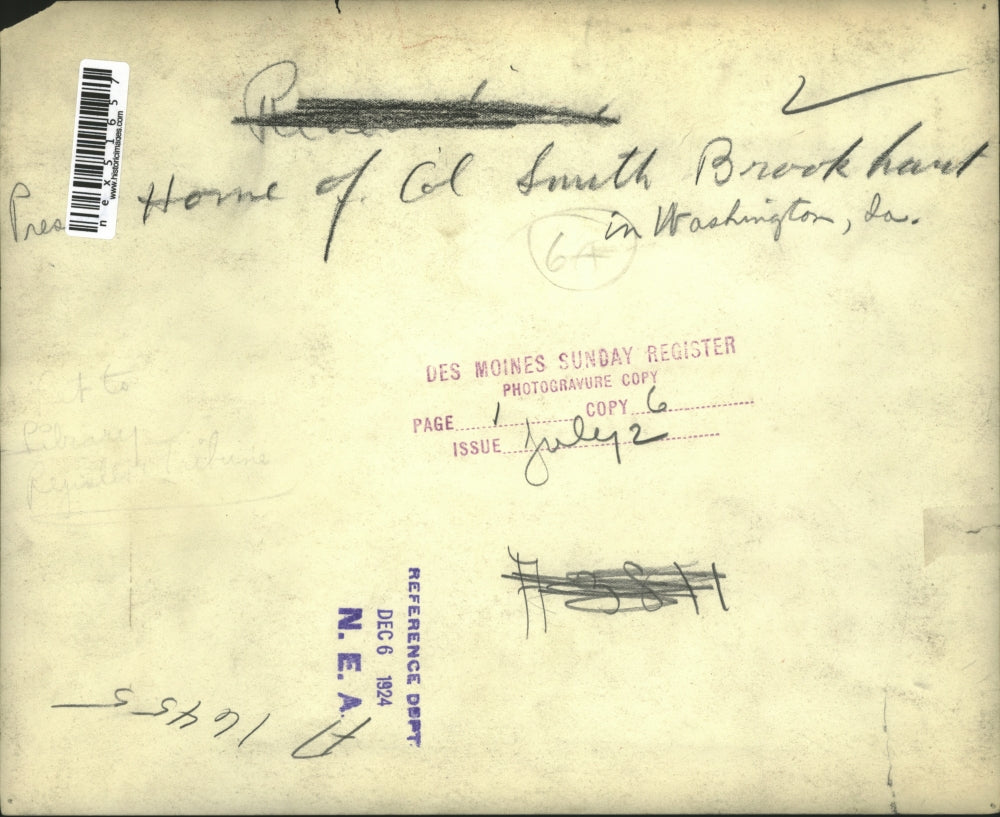 2
Home of Col Smith Brookhart
in Washington, Ia.
Pres
nex51657
www.historicimages.com
6A
DES MOINES SUNDAY REGISTER
PHOTOGRAVURE COPY
PAGE 1 COPY 6
ISSUE July 2
to
Library
Register Tribune
A 3811
REFERENCE DEPT.
DEC 6 1924
N. E. A.
A 16455